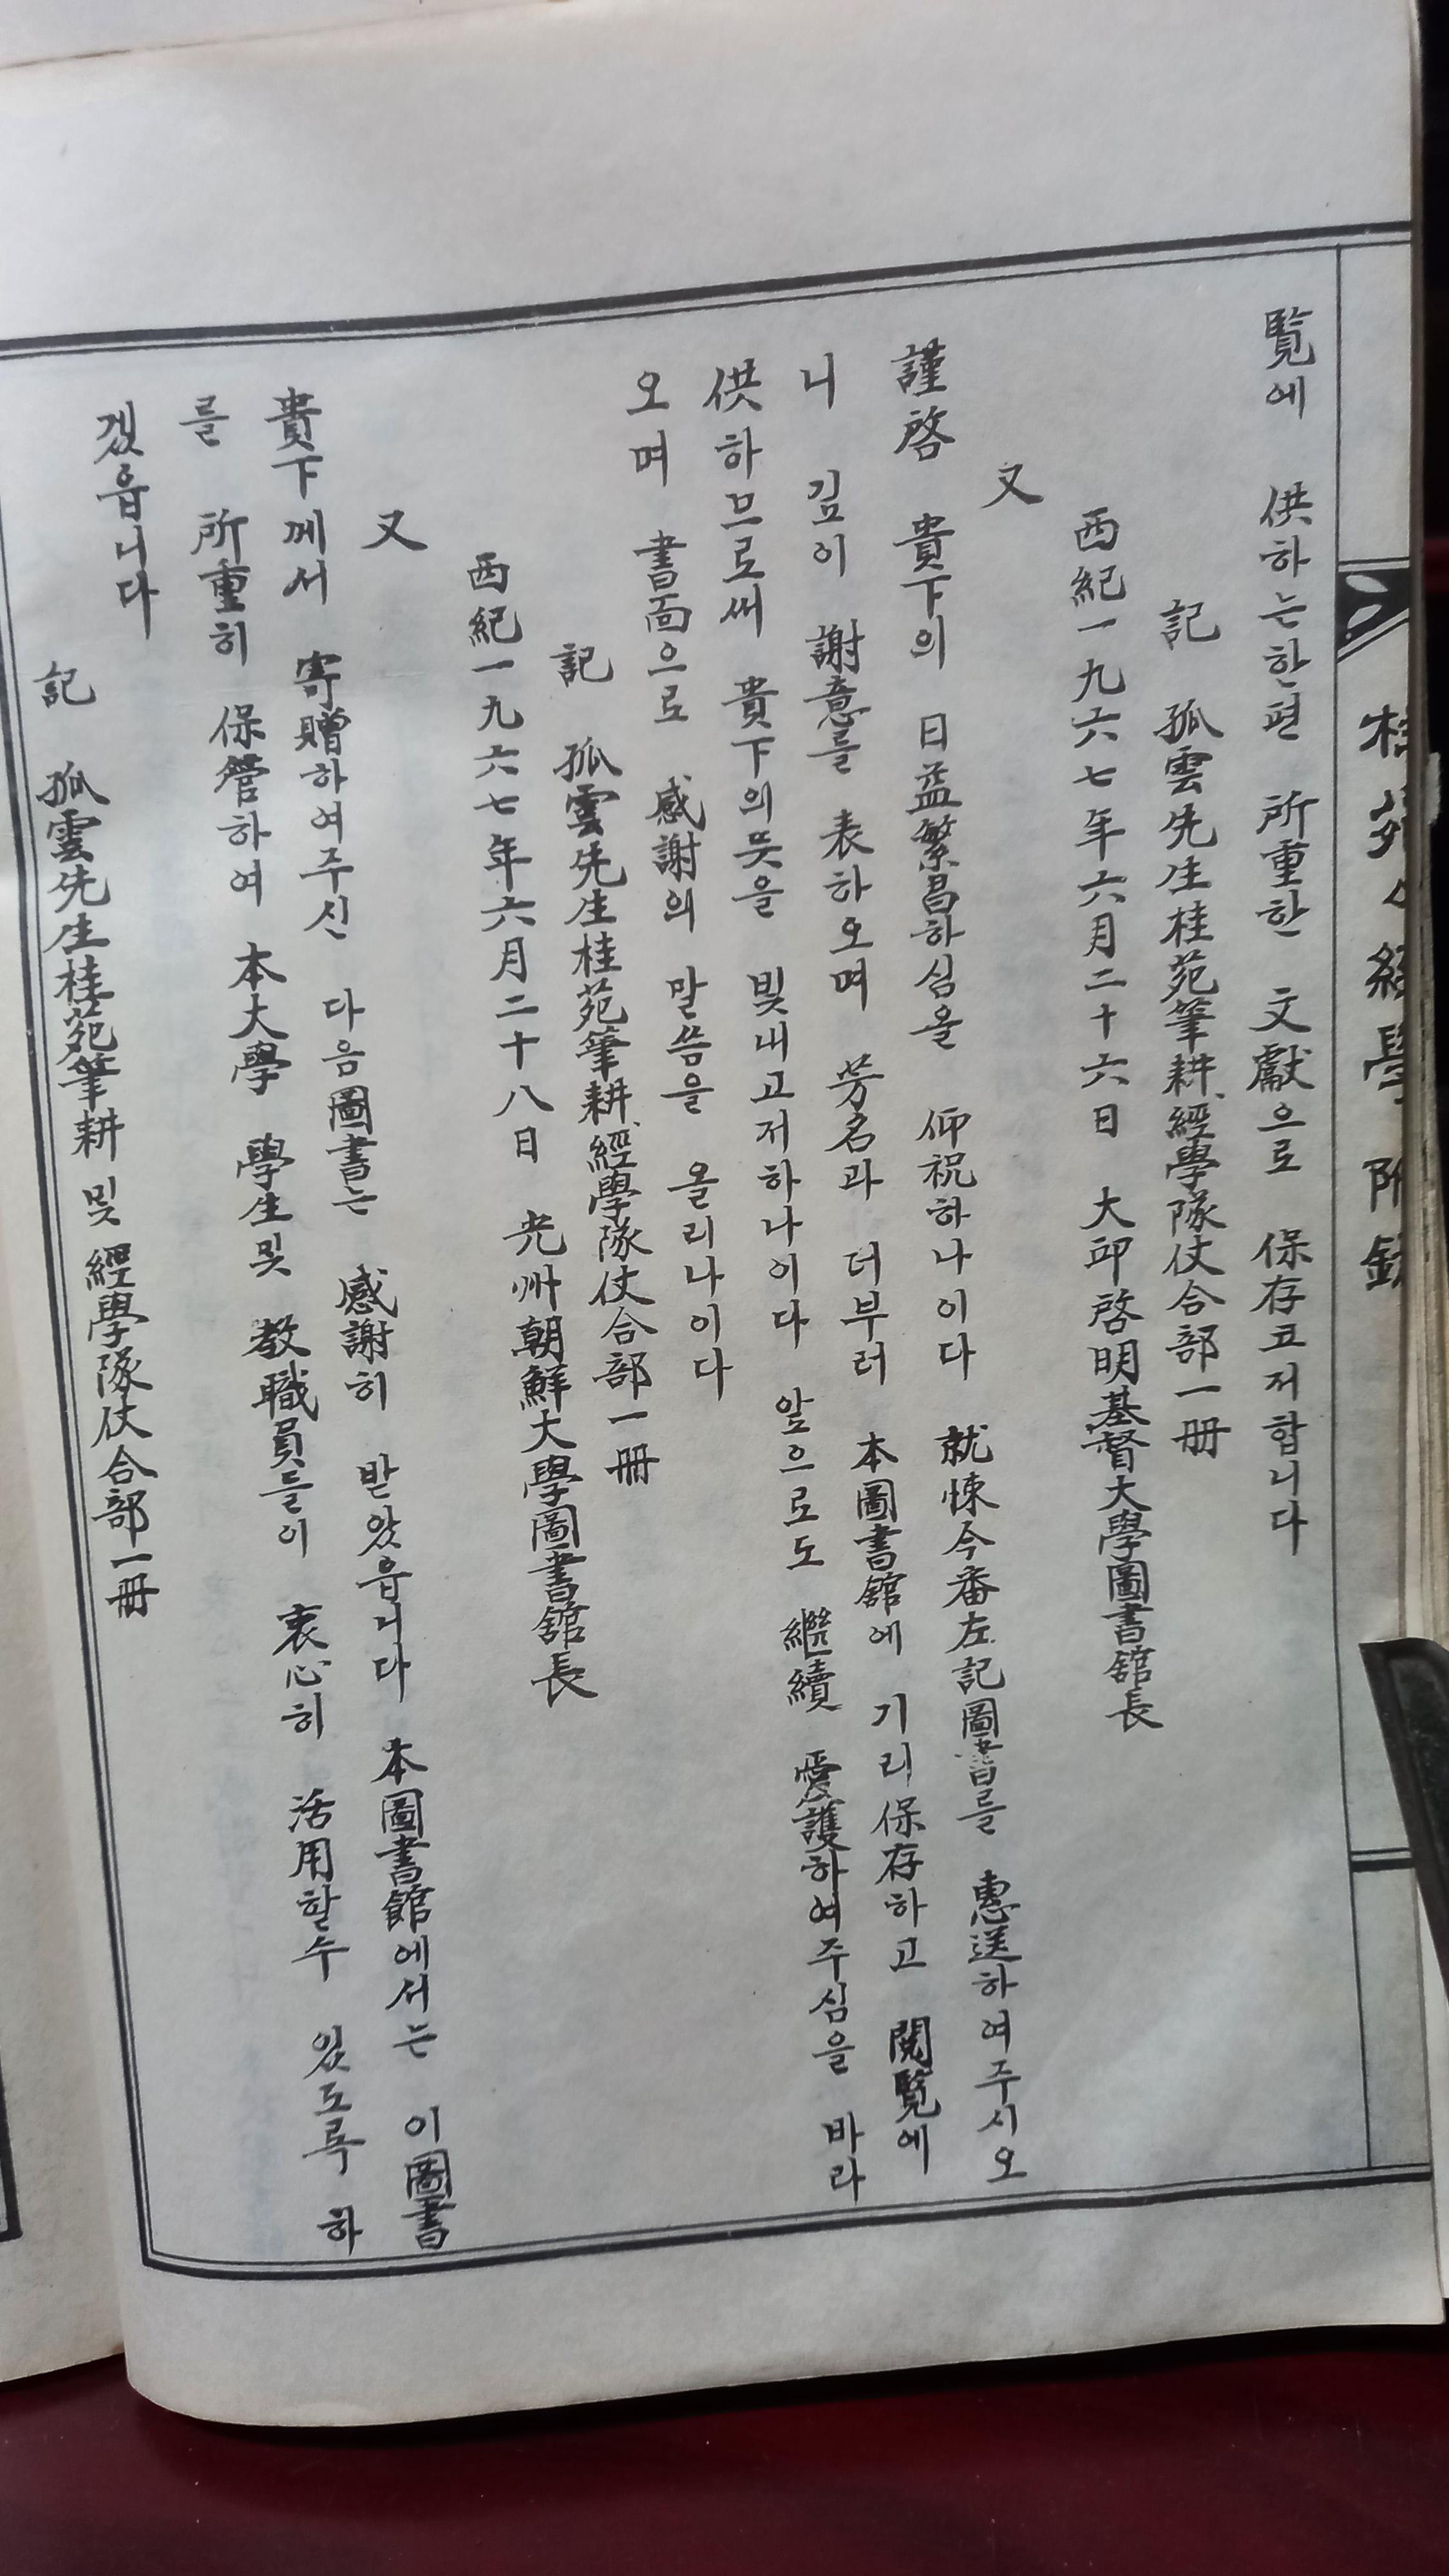 覧에 供하는한편 所重한 文獻으로 保存코저합니다
記 孤雲先生桂苑筆耕、經學隊仗合部一冊
西紀一九六七年六月二十六日 大邱啓明基督大學圖書舘長
又
謹啓 貴下의 日益繁昌하심을 仰祝하나이다 就悚今番左記圖書를 惠送하여주시오
니 깊이 謝意를 表하오며 芳名과 더부러 本圖書舘에 기리保存하고 閱覽에
供하므로써 貴下의뜻을 빛내고저하나이다 앞으로도 繼續 愛護하여주심을 바라
오며 書面으로 感謝의 말씀을 올리나이다
記 孤雲先生桂苑筆耕、經學隊仗合部一冊
西紀一九六七年六月二十八日 光州朝鮮大學圖書舘長
又
貴下께서 寄贈하여주신 다음圖書는 感謝히 받았읍니다 本圖書館에서는 이圖書
를 所重히 保管하여 本大學 學生및 敎職員들이 衷心히 活用할수 있도록 하
겠읍니다
記 孤雲先生桂苑筆耕 및 經學隊仗合部一冊